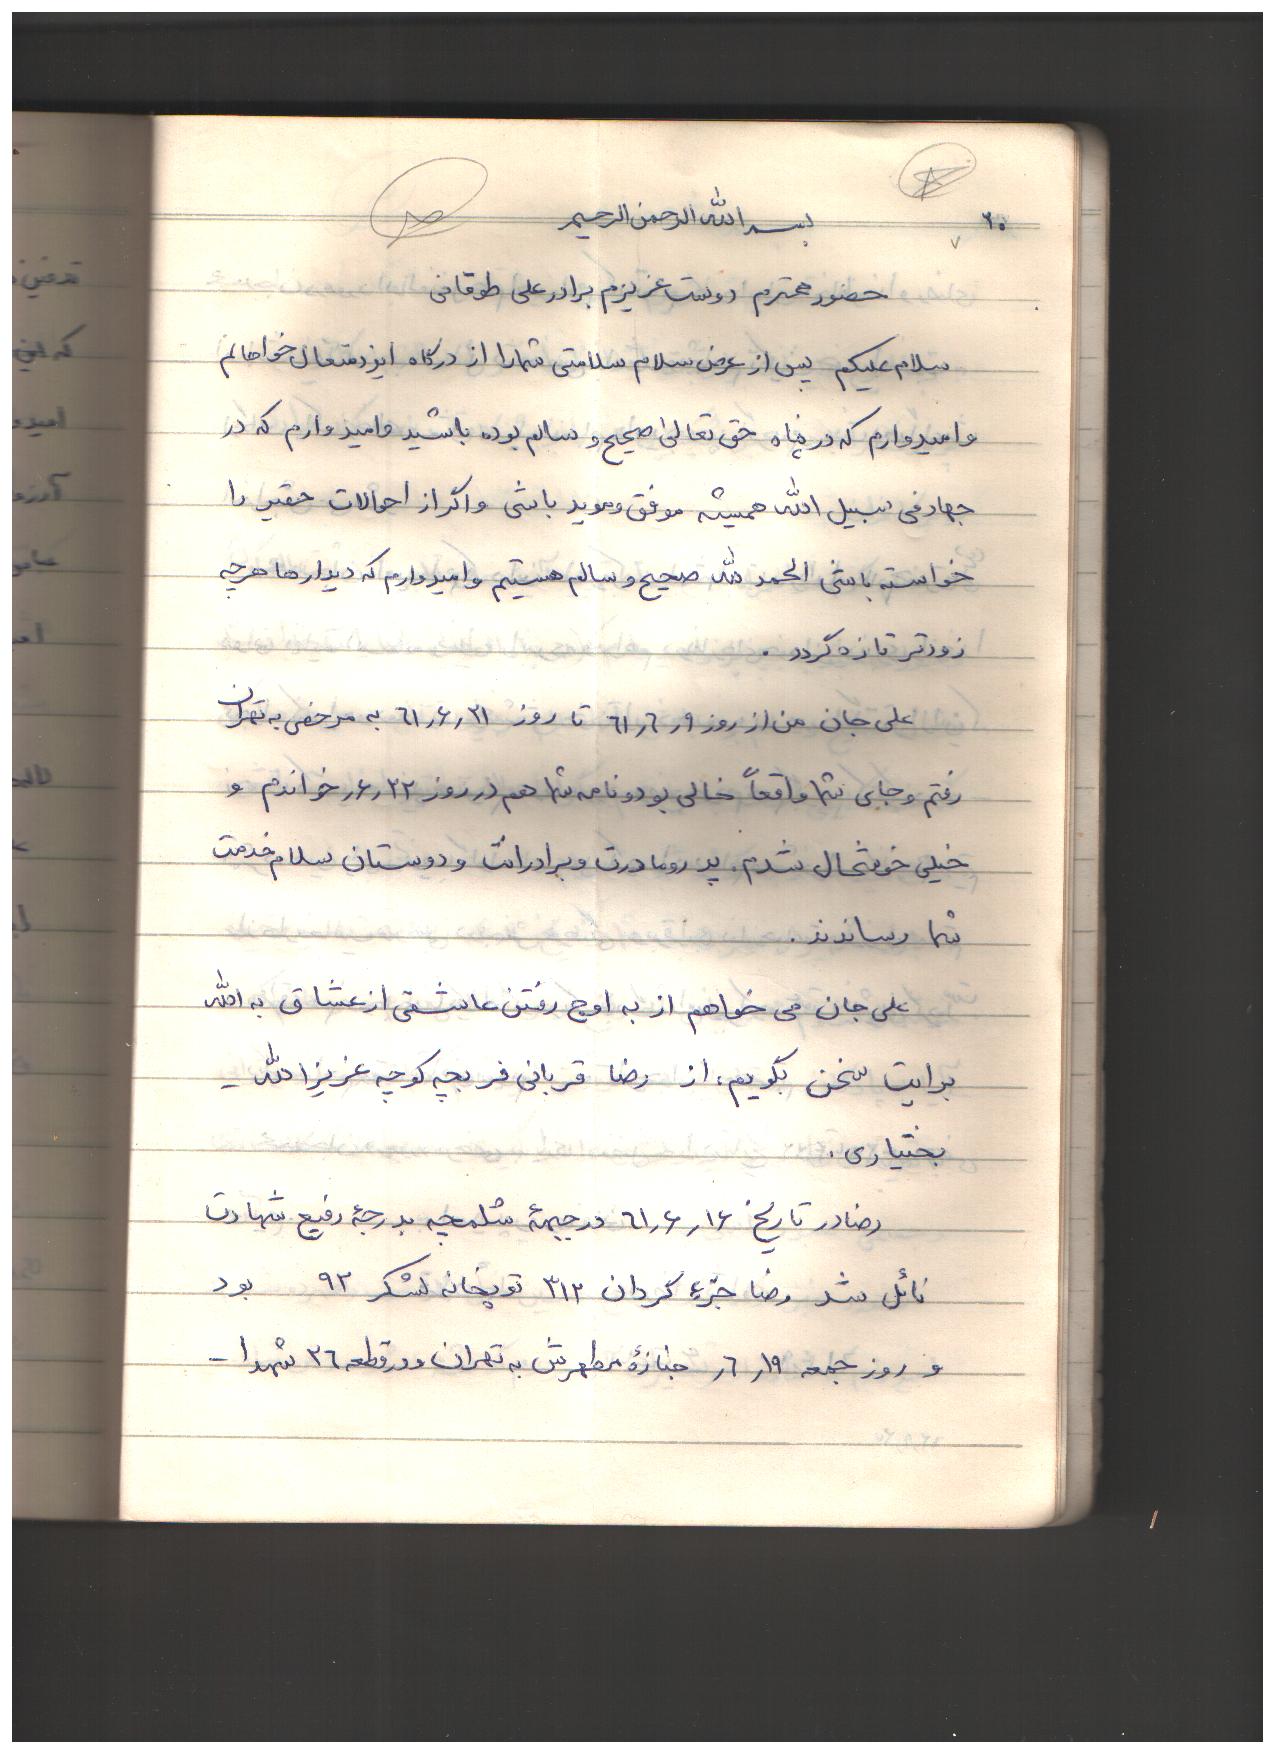 ۲۰
بسم الله الرحمن الرحیم
حضور محترم دوست عزیزم برادر علی طوقانی
سلام علیکم پس از عرض سلام سلامتی شما را از درگاه ایزد متعال خواهانم
و امیدوارم که در پناه حق تعالی صحیح و سالم بوده باشید و امیدوارم که در
جهاد فی سبیل الله همیشه موفق و موید باشی و اگر از احوالات حقیر را
خواسته باشی الحمد لله صحیح و سالم هستیم و امیدوارم که دیدارها هر چه
زودتر تازه گردد .
علی جان من از روز ۶۱٫۶٫۹ تا روز ۶۱٫۶٫۲۱ به مرخصی به تهران
رفتم و جای شما واقعاً خالی بود و نامه شما هم در روز ۶٫۲۲٫ خواندم و
خیلی خوشحال شدم. پدر و مادرت و برادرانت و دوستان سلام خدمت
شما رساندند .
علی جان می خواهم از به اوج رفتن عاشقی از عشاق به الله
برایت سخن بگویم، از رضا قربانی فر بچه کوچه عزیز الله –
بختیاری .
رضا در تاریخ ۶۱٫۶٫۱۶ در جبههٔ شلمچه بدرجهٔ رفیع شهادت
نائل شد رضا جزء گردان ۳۱۲ توپخانه لشکر ۹۲ بود
و روز جمعه ۶٫۱۹٫ جنازهٔ مطهرش به تهران و در قطعه ۲۶ شهدا –
تدفین
که این
آرزو